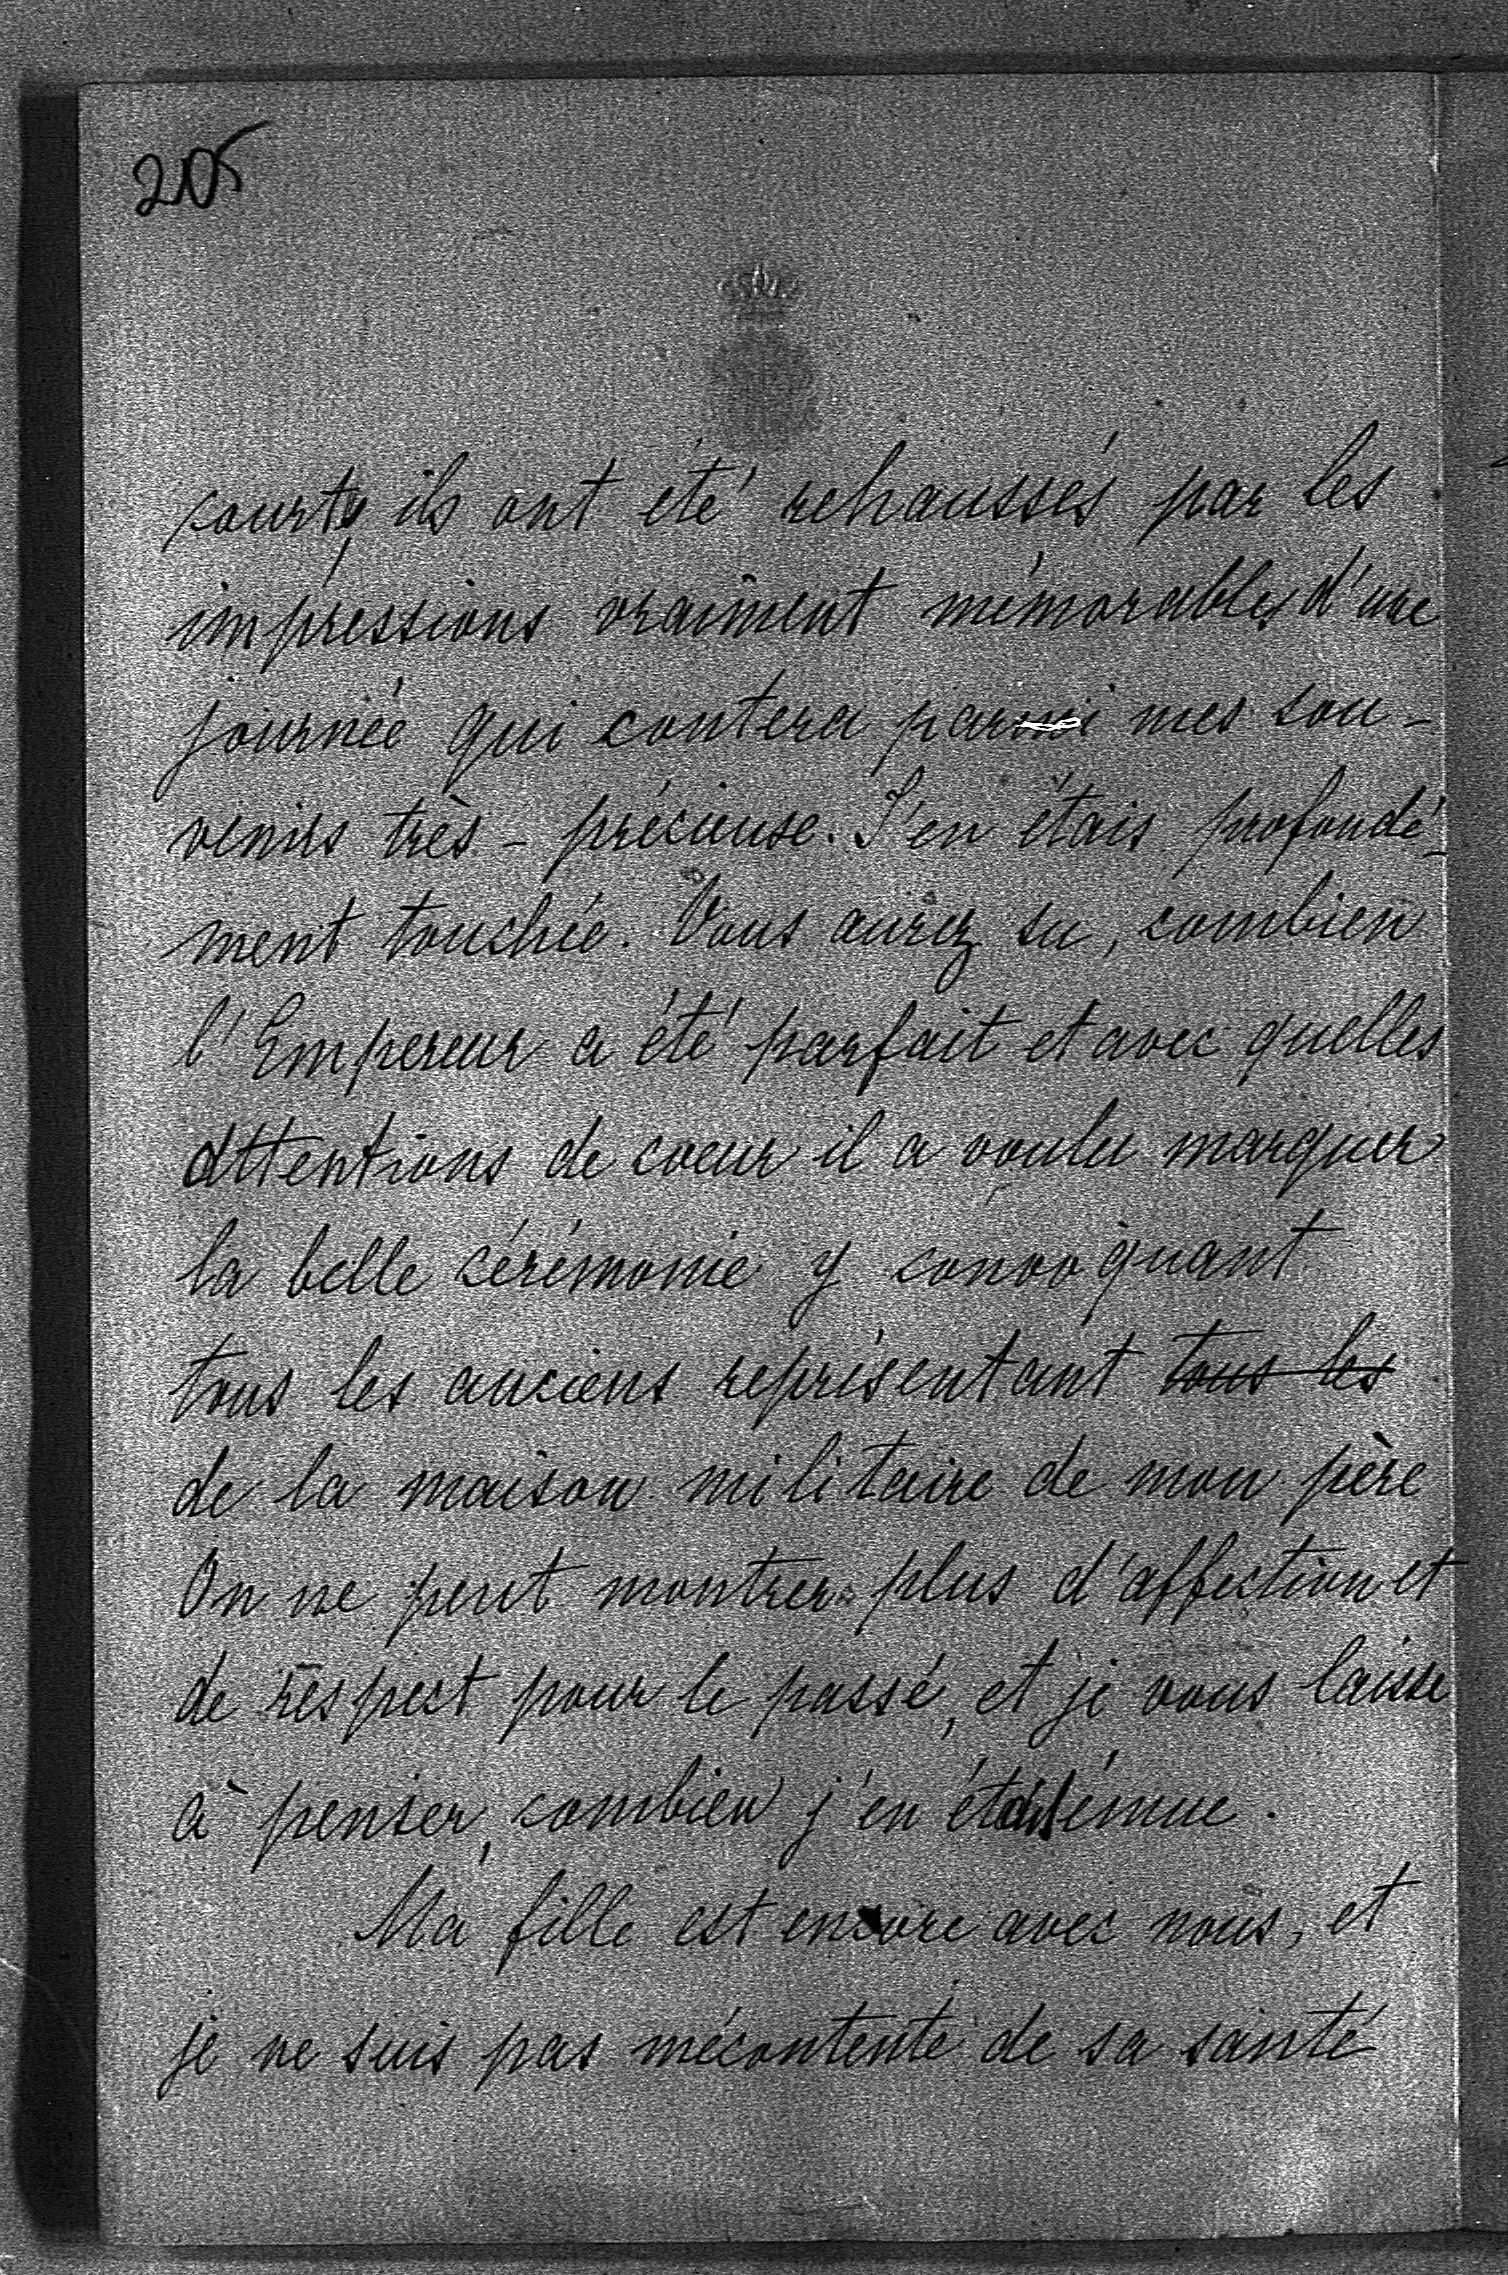 205
courts, ils ont été rehaussés par les
impressions vraiment mémorables d'une
journée qui contera parmi mes sou-
venirs très-précieuse. J'en étais profondé-
ment touchée. Vous aurez su, combien
l'Empereur a été parfait et avec quelles
attentions de coeur il a voulu marquer
la belle cérémonie y convoquant
tous les anciens représentant tous les
de la maison militaire de mon père
On ne peut montrer plus d'affection et
de respect pour le passé, et je vous laisse
à penser, combien j'en étais émue.
Ma fille est encore avec nous, et
je ne suis pas mécontente de sa santé